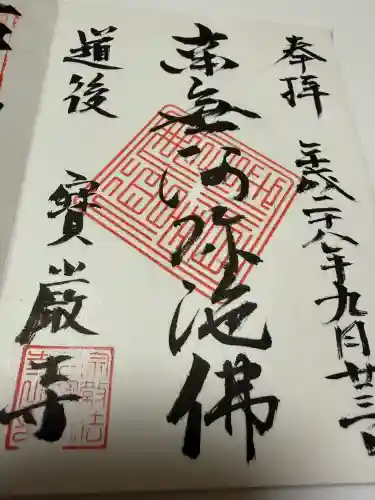 奉拝 平成二十八年九月廿三日
南無阿弥陀佛
道後 寳厳寺